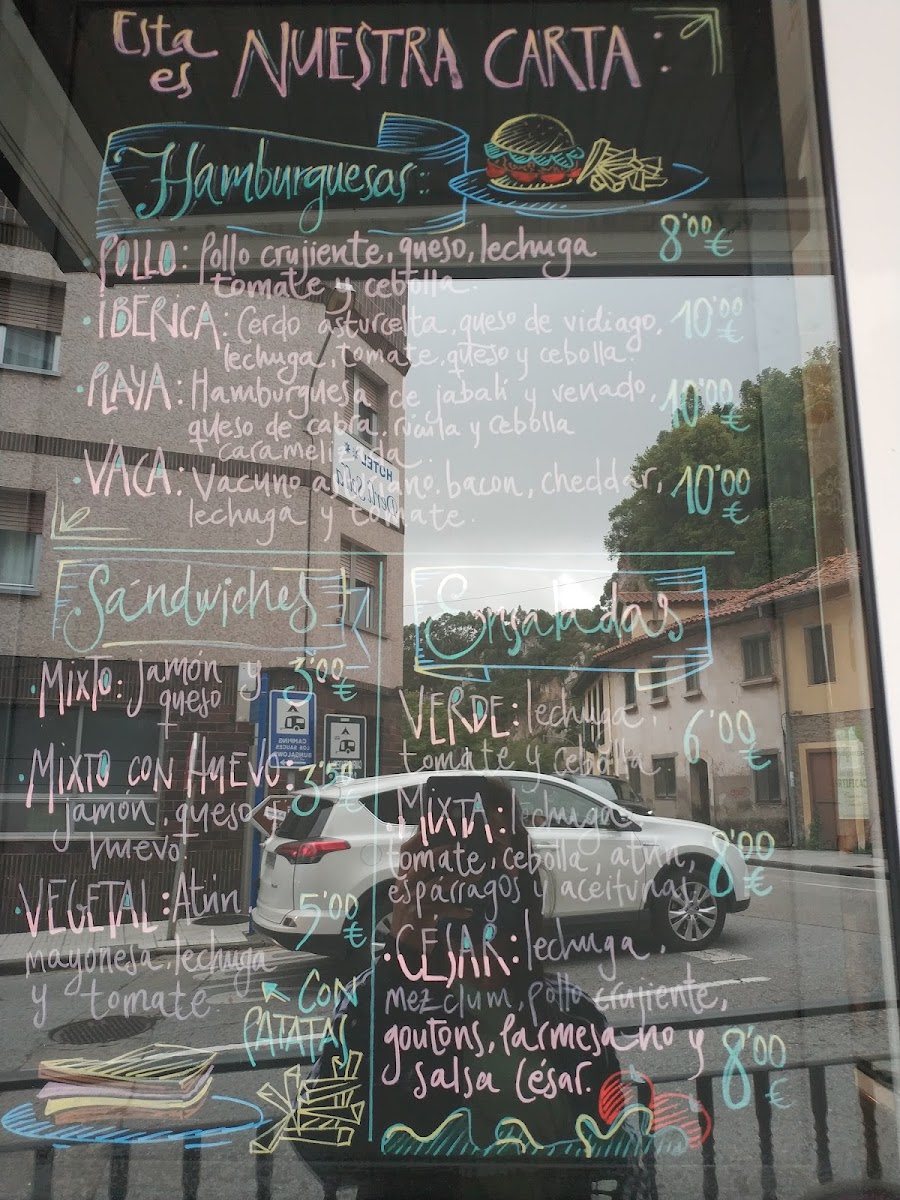 Esta
es
NUESTRA CARTA:
Hamburguesas:
POLLO: Pollo crujiente, queso, lechuga 8'00€
tomate y cebolla.
·IBERICA: Cerdo asturcelta, queso de vidiago, 10'00€
lechuga, tomate, queso y cebolla.
·PLAYA: Hamburguesa de jabalí y venado, 10'00€
queso de cabra, rúcula y cebolla
caramelizada.
·VACA: Vacuno asturiano, bacon, cheddar, 10'00€
lechuga y tomate.
HOTEL
Sándwiches
·MIXTO: Jamón y 3'00€
queso
·MIXTO CON HUEVO: 3'50€
jamón, queso y
huevo.
·VEGETAL: Atún 5'00€
mayonesa, lechuga
y tomate
CON
PATATAS
Ensaladas
VERDE: lechuga, 6'00€
tomate y cebolla
·MIXTA: lechuga,
tomate, cebolla, atún, 8'00€
espárragos y aceitunas
·CÉSAR: lechuga,
mezclum, pollo crujiente,
goutons, Parmesano y 8'00€
salsa César.
CAMPING
LOS SAUCES
BUNGALOWS